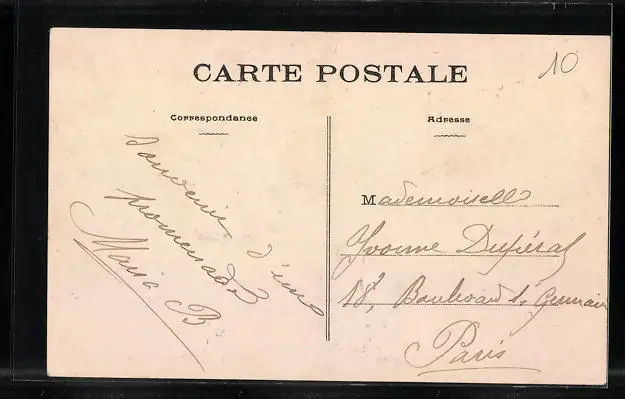 CARTE POSTALE
10
Correspondance
Adresse
Souvenir d'une
promenade
Maria B
Mademoiselle
Yvonne
18, Boulevard St Germain
Paris